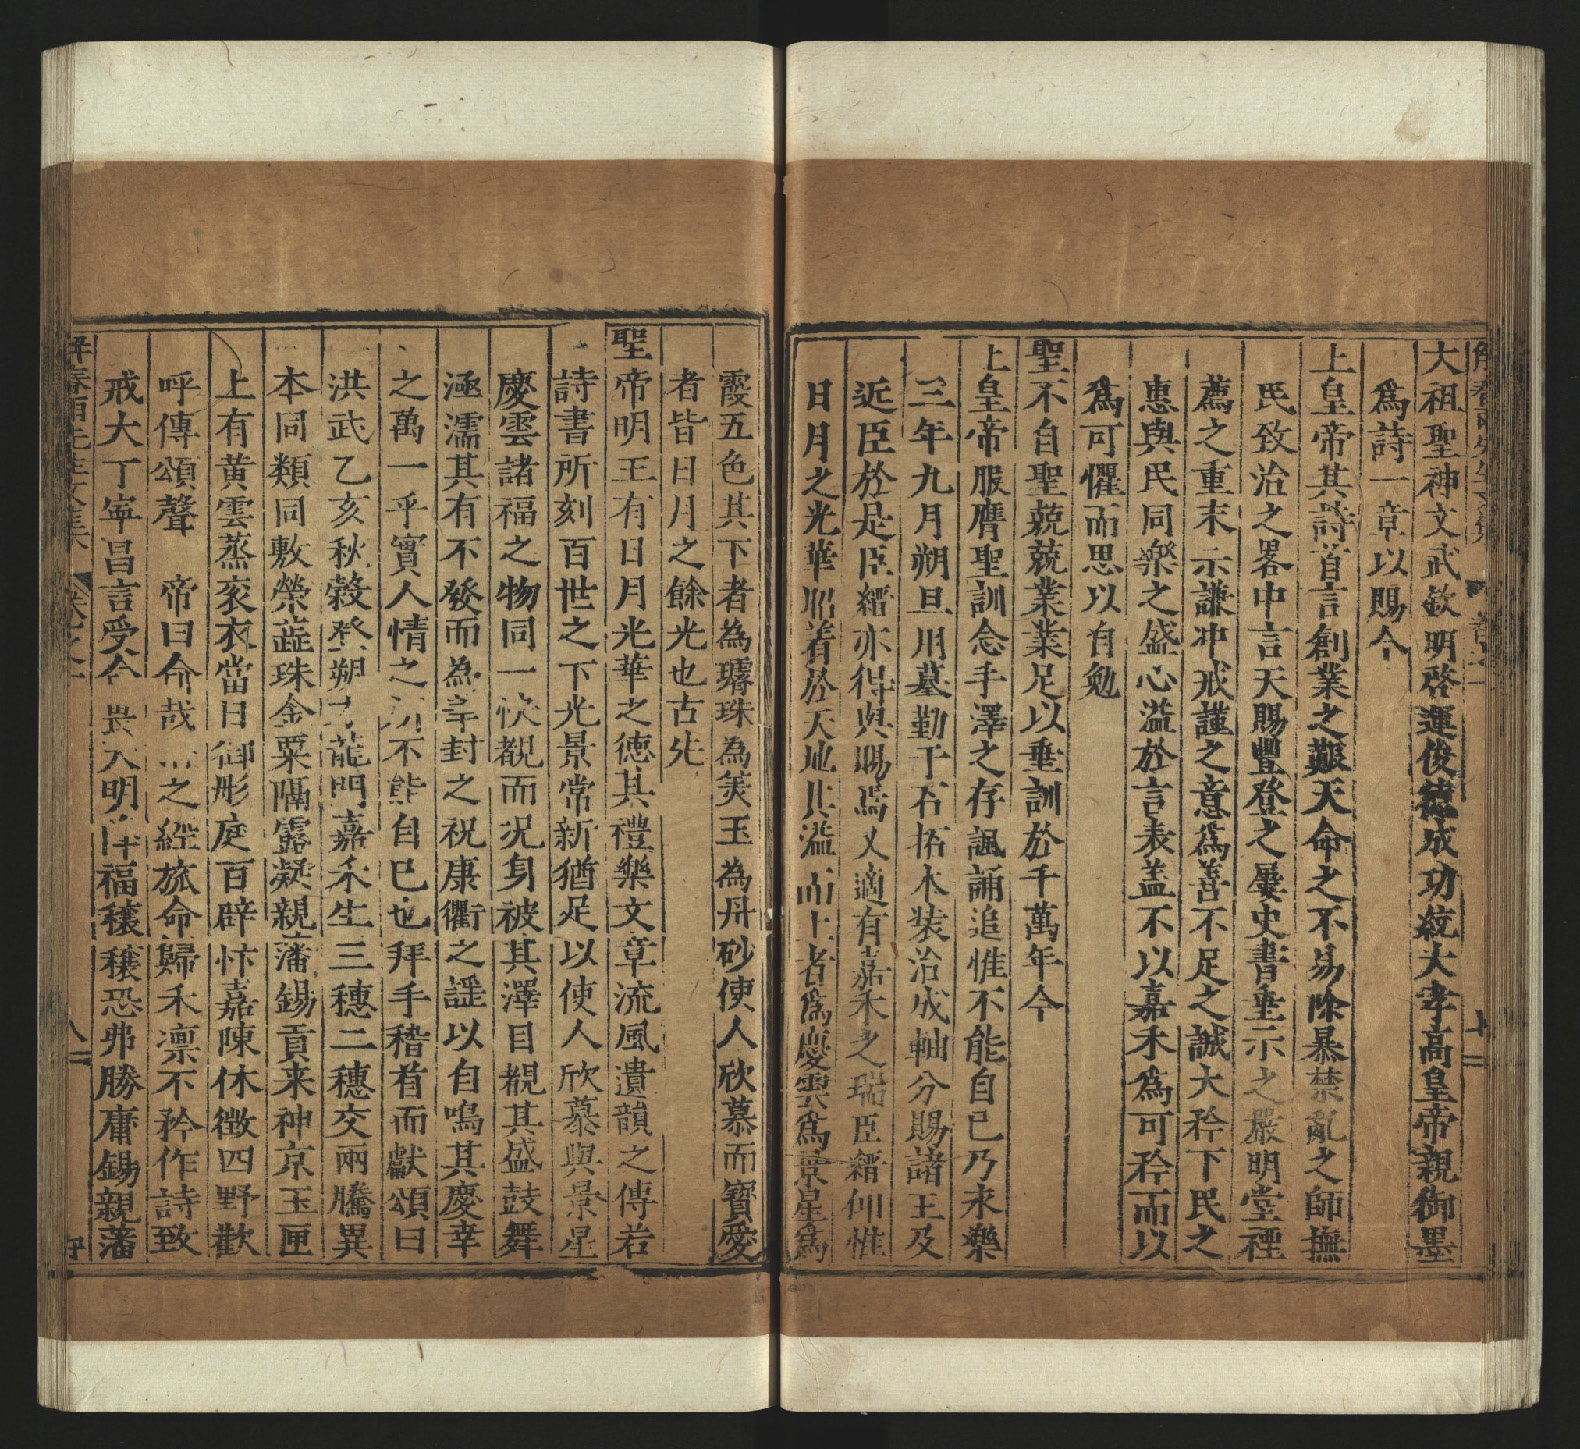 大祖聖神文武欽明啓運俊德成功統大孝高皇帝親御墨
爲詩一章以賜今
上皇帝其詩首言創業之艱天命之不易除暴禁亂之師撫
民致治之畧中言天賜豐登之屢史書垂示之嚴明堂禋
薦之重末示謙冲戒謹之意爲善不足之誠大矜下民之
惠與民同樂之盛心溢於言表盖不以嘉禾爲可矜而以
爲可懼而思以自勉
聖不自聖兢兢業業足以垂訓於千萬年今
上皇帝服膺聖訓念手澤之存諷誦追惟不能自已乃永樂
三年九月朔旦用墓勒于石拓本装治成軸分賜諸王及
近臣於是臣縉亦得與賜焉又適有嘉禾之瑞臣縉仰惟
日月之光華昭著於天地其溢而上者爲慶雲爲景星爲
霞五色其下者為瓊珠為美玉為丹砂使人欣慕而寳愛
者皆日月之餘光也古先
聖帝明王有日月光華之德其禮樂文章流風遺韻之傳若
詩書所刻百世之下光景常新猶足以使人欣慕與景星
慶雲諸福之物同一快覩而况身被其澤目覩其盛鼓舞
涵濡其有不發而為辛封之祝康衢之謡以自鳴其慶幸
之萬一乎實人情之 不能自已也拜手稽首而獻頌曰
洪武乙亥秋穀登朔方龍門嘉禾生三穗二穗交兩騰異
本同類同敷榮蘂珠金粟隔露凝親藩錫貢来神京玉匣
上有黄雲蒸衮衣當日御彤庭百辟忭嘉陳休徵四野歡
呼傳頌聲 帝曰俞哉 之經旅命歸禾凛不矜作詩致
戒大丁寧昌言受命畏天明 福穰穰恐弗勝庸錫親藩